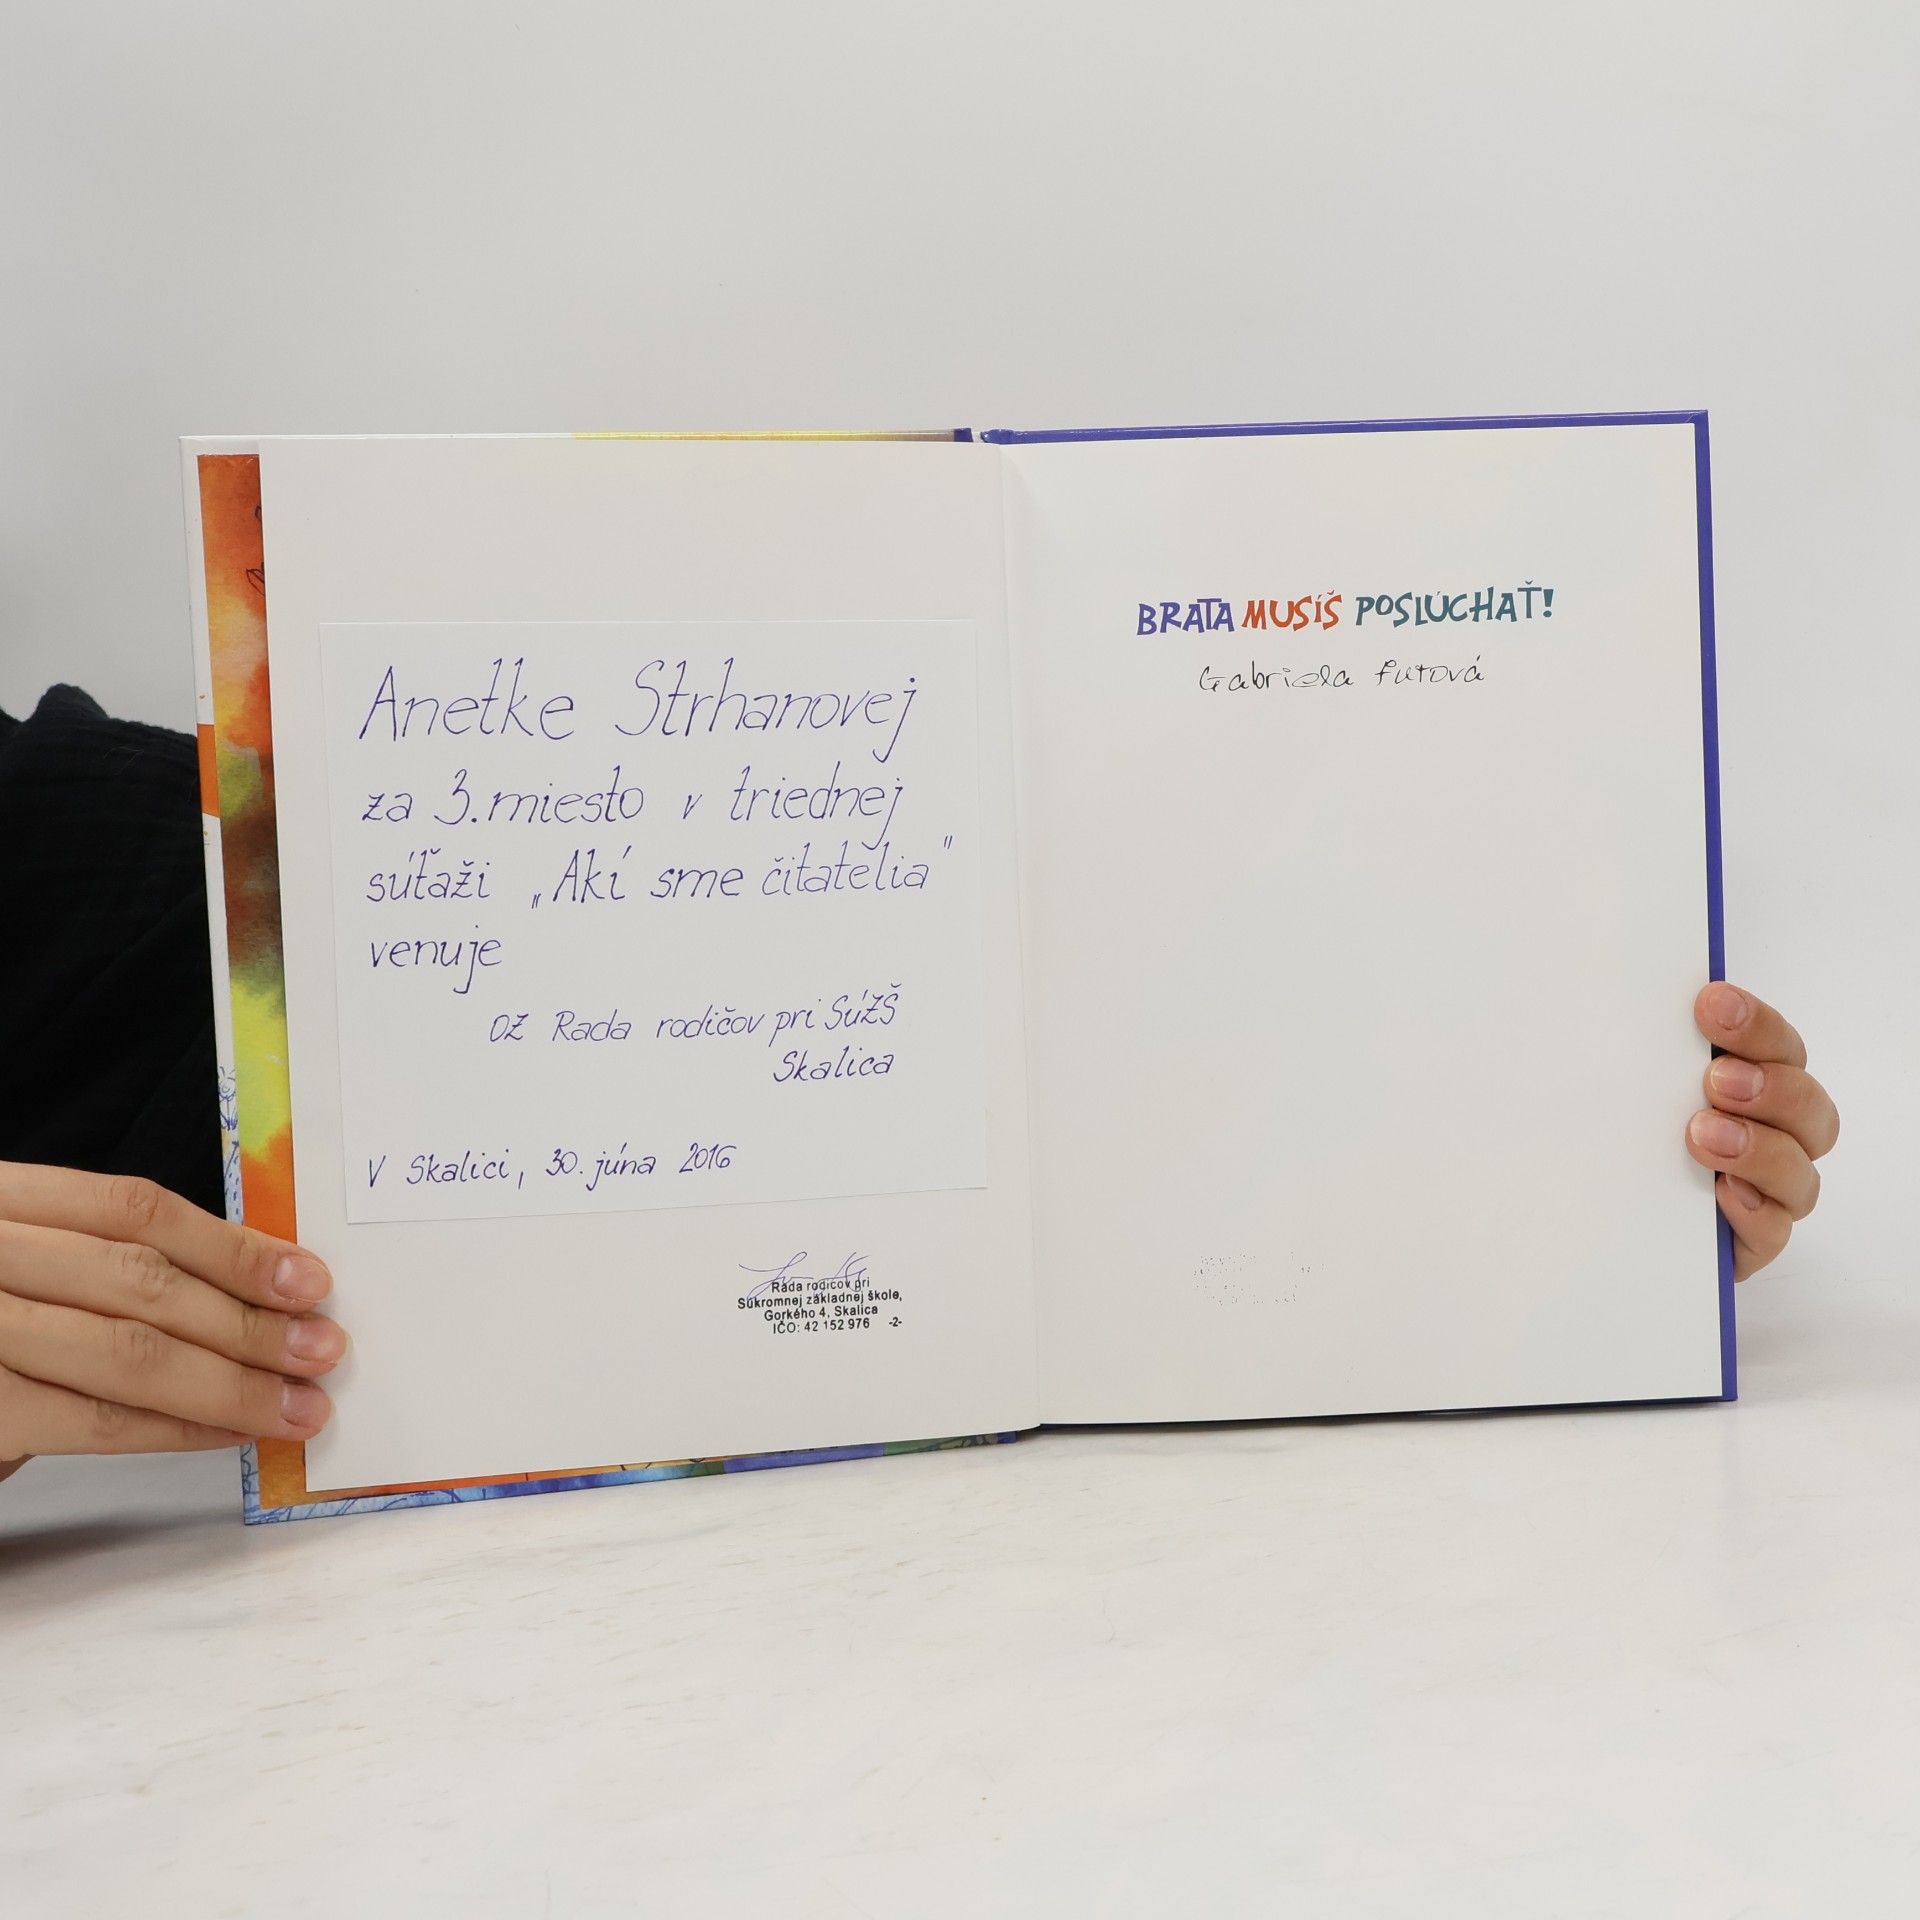 Anetke Strhanovej
za 3. miesto v triednej
súťaži „Akí sme čitatelia"
venuje
OZ Rada rodičov pri SúZŠ
Skalica
V Skalici, 30. júna 2016
Rada rodičov pri
Súkromnej základnej škole,
Gorkého 4, Skalica
IČO: 42 152 976 -2-
BRATA MUSÍŠ POSLÚCHAŤ!
Gabriela Futová